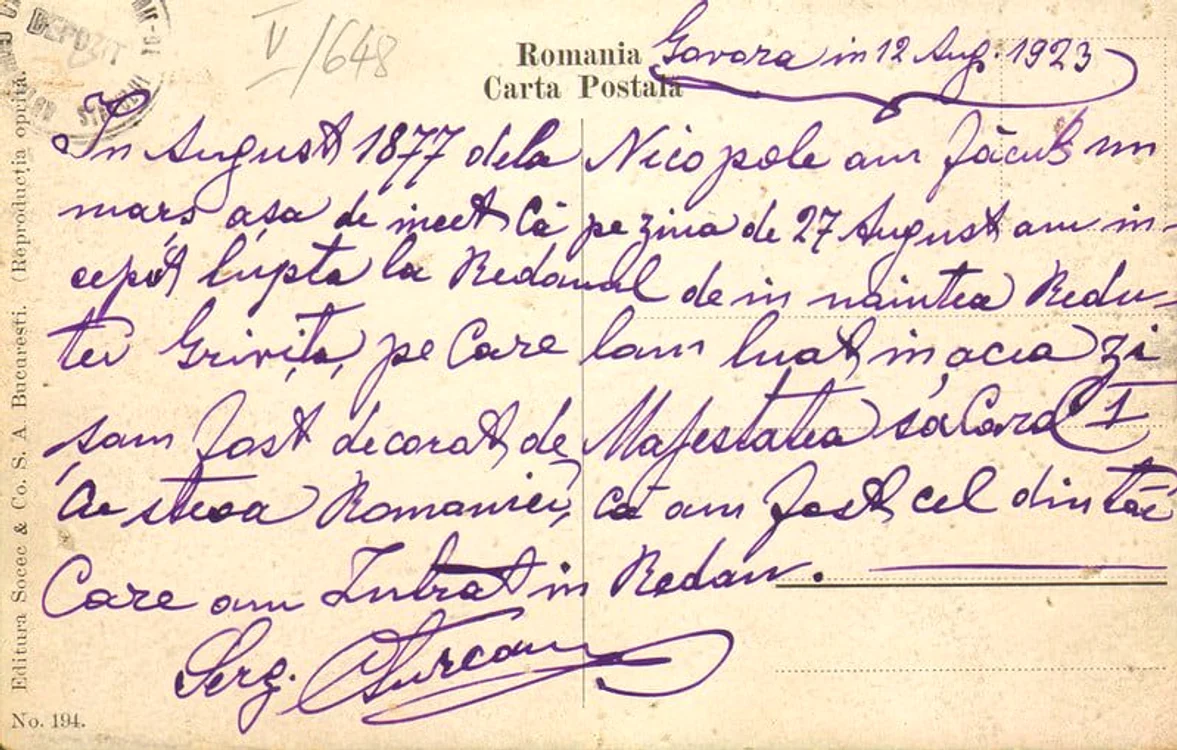 DEPOZIT
V/1648
Romania
Carta Postală
Govora in 12 Aug. 1923
In August 1877 dela Nicopole am făcut un
marș așa de incet Că pe ziua de 27 August am in-
ceput lupta la Redanul de in naintea Redu-
tei Grivița, pe Care lam luat, in acea zi
șam fost decorat de Majestatea sa Carol I
Cu steoa Romaniei, că am fost cel din tăi
Care am Intrat in Redan.
Serg. Țurcanu
Editura Socec & Co. S. A. Bucaresti. (Reproducția oprită.
No. 194.